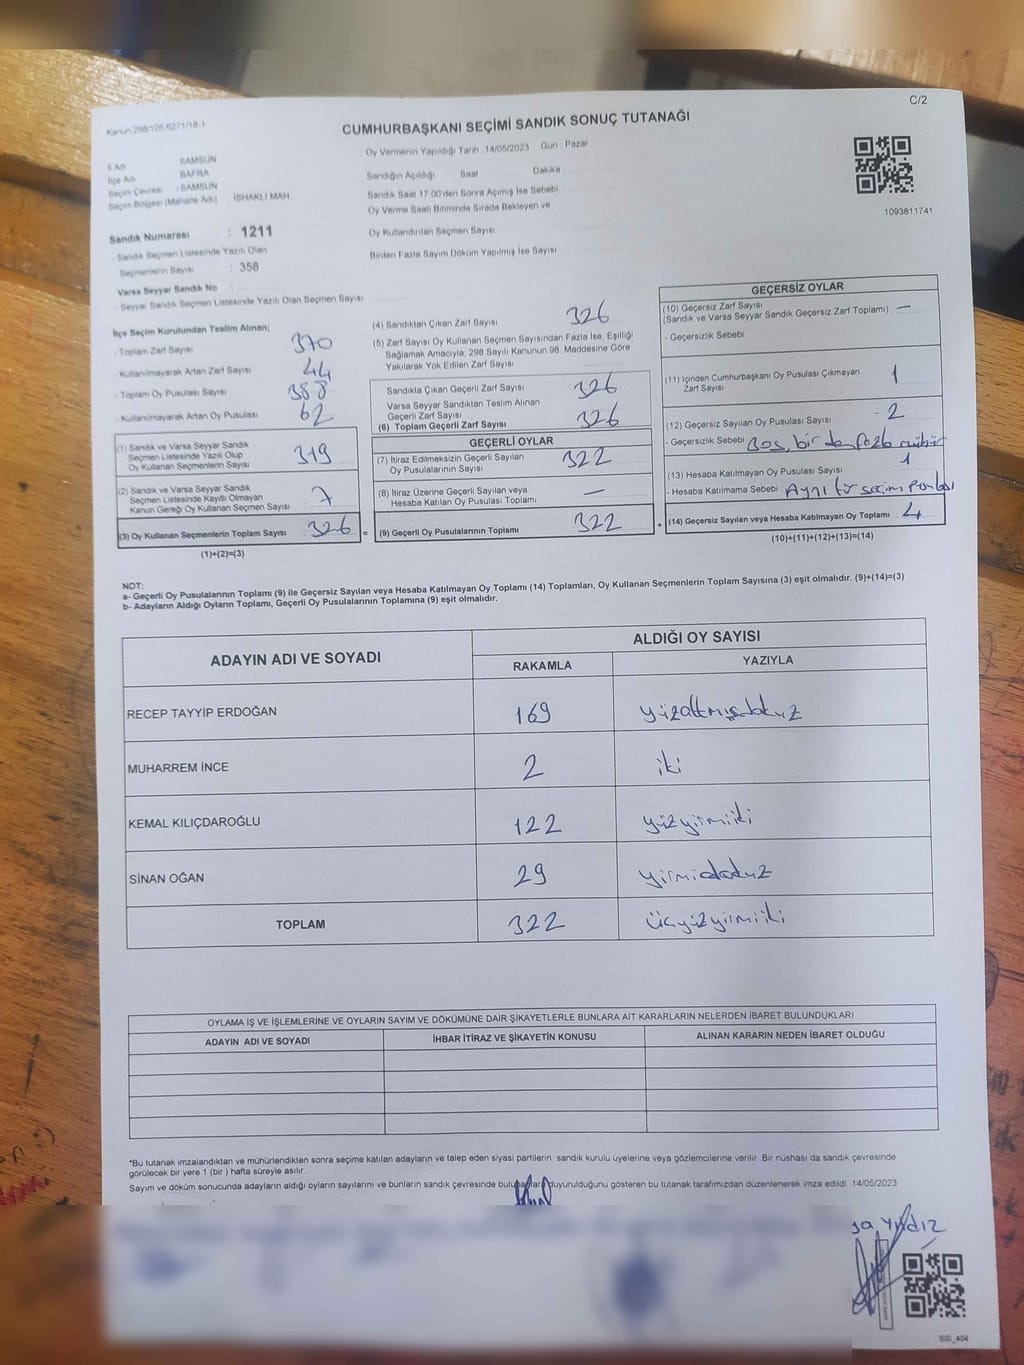 C/2
Kanun:298/105.6271/18-1
CUMHURBAŞKANI SEÇİMİ SANDIK SONUÇ TUTANAĞI
İl Adı SAMSUN
İlçe Adı BAFRA
Seçim Çevresi : SAMSUN
Seçim Bölgesi (Mahalle Adı) İSHAKLI MAH.
Sandık Numarası : 1211
- Sandık Seçmen Listesinde Yazılı Olan
Seçmenlerin Sayısı : 358
Varsa Seyyar Sandık No :
- Seyyar Sandık Seçmen Listesinde Yazılı Olan Seçmen Sayısı
Oy Vermenin Yapıldığı Tarih :14/05/2023 Gün Pazar
Sandığın Açıldığı Saat Dakika
Sandık Saat 17:00'den Sonra Açımış İse Sebebi
Oy Verme Saati Bitiminde Sırada Bekleyen ve
Oy Kullandırılan Seçmen Sayısı
Birden Fazla Sayım Döküm Yapılmış İse Sayısı
1093811741
İlçe Seçim Kurulundan Teslim Alınan;
- Toplam Zarf Sayısı 370
- Kullanılmayarak Artan Zarf Sayısı 44
- Toplam Oy Pusulası Sayısı 388
- Kullanılmayarak Artan Oy Pusulası 62
(1) Sandık ve Varsa Seyyar Sandık
Seçmen Listesinde Yazılı Olup
Oy Kullanan Seçmenlerin Sayısı 319
(2) Sandık ve Varsa Seyyar Sandık
Seçmen Listesinde Kayıtlı Olmayan
Kanun Gereği Oy Kullanan Seçmen Sayısı 7
(3) Oy Kullanan Seçmenlerin Toplam Sayısı 326 =
(1)+(2)=(3)
(4) Sandıktan Çıkan Zarf Sayısı 326
(5) Zarf Sayısı Oy Kullanan Seçmen Sayısından Fazla İse, Eşitliği
Sağlamak Amacıyla, 298 Sayılı Kanunun 98. Maddesine Göre
Yakılarak Yok Edilen Zarf Sayısı
Sandıkta Çıkan Geçerli Zarf Sayısı 326
Varsa Seyyar Sandıktan Teslim Alınan
Geçerli Zarf Sayısı
(6) Toplam Geçerli Zarf Sayısı 326
GEÇERLİ OYLAR
(7) İtiraz Edilmeksizin Geçerli Sayılan
Oy Pusulalarının Sayısı 322
(8) İtiraz Üzerine Geçerli Sayılan veya
Hesaba Katılan Oy Pusulası Toplamı —
(9) Geçerli Oy Pusulalarının Toplamı 322 +
GEÇERSİZ OYLAR
(10) Geçersiz Zarf Sayısı
(Sandık ve Varsa Seyyar Sandık Geçersiz Zarf Toplamı) —
- Geçersizlik Sebebi
(11) İçinden Cumhurbaşkanı Oy Pusulası Çıkmayan
Zarf Sayısı 1
(12) Geçersiz Sayılan Oy Pusulası Sayısı 2
- Geçersizlik Sebebi Boş, bir den fazla mühür
(13) Hesaba Katılmayan Oy Pusulası Sayısı 1
- Hesaba Katılmama Sebebi : Aynı tür seçim
(14) Geçersiz Sayılan veya Hesaba Katılmayan Oy Toplamı : 4
(10)+(11)+(12)+(13)=(14)
NOT:
a- Geçerli Oy Pusulalarının Toplamı (9) ile Geçersiz Sayılan veya Hesaba Katılmayan Oy Toplamı (14) Toplamları, Oy Kullanan Seçmenlerin Toplam Sayısına (3) eşit olmalıdır. (9)+(14)=(3)
b- Adayların Aldığı Oyların Toplamı, Geçerli Oy Pusulalarının Toplamına (9) eşit olmalıdır.
ADAYIN ADI VE SOYADI
ALDIĞI OY SAYISI
RAKAMLA YAZIYLA
RECEP TAYYİP ERDOĞAN 169 yüzaltmışdokuz
MUHARREM İNCE 2 iki
KEMAL KILIÇDAROĞLU 122 yüzyirmiiki
SİNAN OĞAN 29 yirmidokuz
TOPLAM 322 üçyüzyirmiiki
OYLAMA İŞ VE İŞLEMLERİNE VE OYLARIN SAYIM VE DÖKÜMÜNE DAİR ŞİKAYETLERLE BUNLARA AİT KARARLARIN NELERDEN İBARET BULUNDUKLARI
ADAYIN ADI VE SOYADI İHBAR İTİRAZ VE ŞİKAYETİN KONUSU ALINAN KARARIN NEDEN İBARET OLDUĞU
*Bu tutanak imzalandıktan ve mühürlendikten sonra seçime katılan adayların ve talep eden siyasi partilerin sandık kurulu üyelerine veya gözlemcilerine verilir. Bir nüshası da sandık çevresinde
görülecek bir yere 1 (bir ) hafta süreyle asılır.
Sayım ve döküm sonucunda adayların aldığı oyların sayılarını ve bunların sandık çevresinde duyurulduğunu gösteren bu tutanak tarafımızdan düzenlenerek imza edildi. 14/05/2023
Yıldız